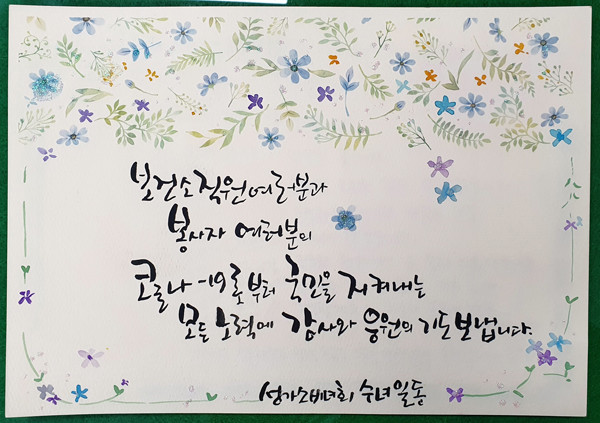 보건소 직원 여러분과
봉사자 여러분의
코로나-19로부터 국민을 지켜내는
모든 노력에 감사와 응원의 기도 보냅니다.
성가소비녀회 수녀 일동